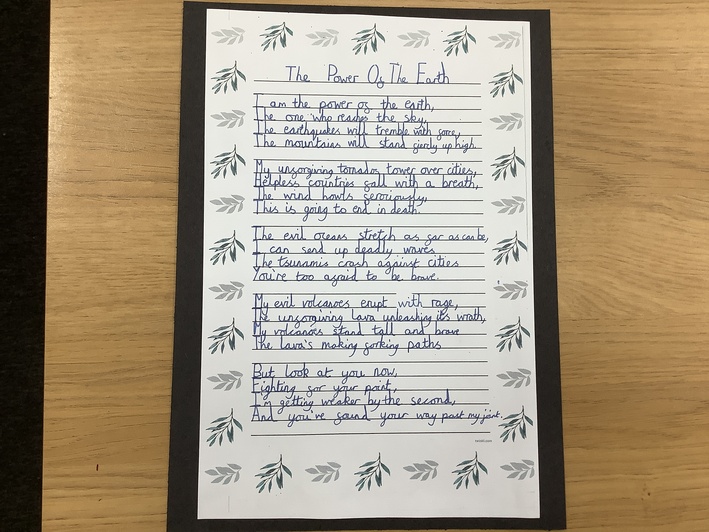 The Power Of The Earth
I am the power of the earth,
The one who reaches the sky,
The earthquakes will tremble with force,
The mountains will stand firmly up high.
My unforgiving tornados tower over cities,
Helpless countries fall with a breath,
The wind howls feroriously,
This is going to end in death.
The evil oceans stretch as far as can be,
I can send up deadly waves
The tsunamis crash against cities
You're too afraid to be brave.
My evil volcanoes erupt with rage,
The unforgiving lava unleashing its wrath,
My volcanoes stand tall and brave
The lava's making forking paths
But look at you now,
Fighting for your point,
I'm getting weaker by the second,
And you've found your way past my joint.